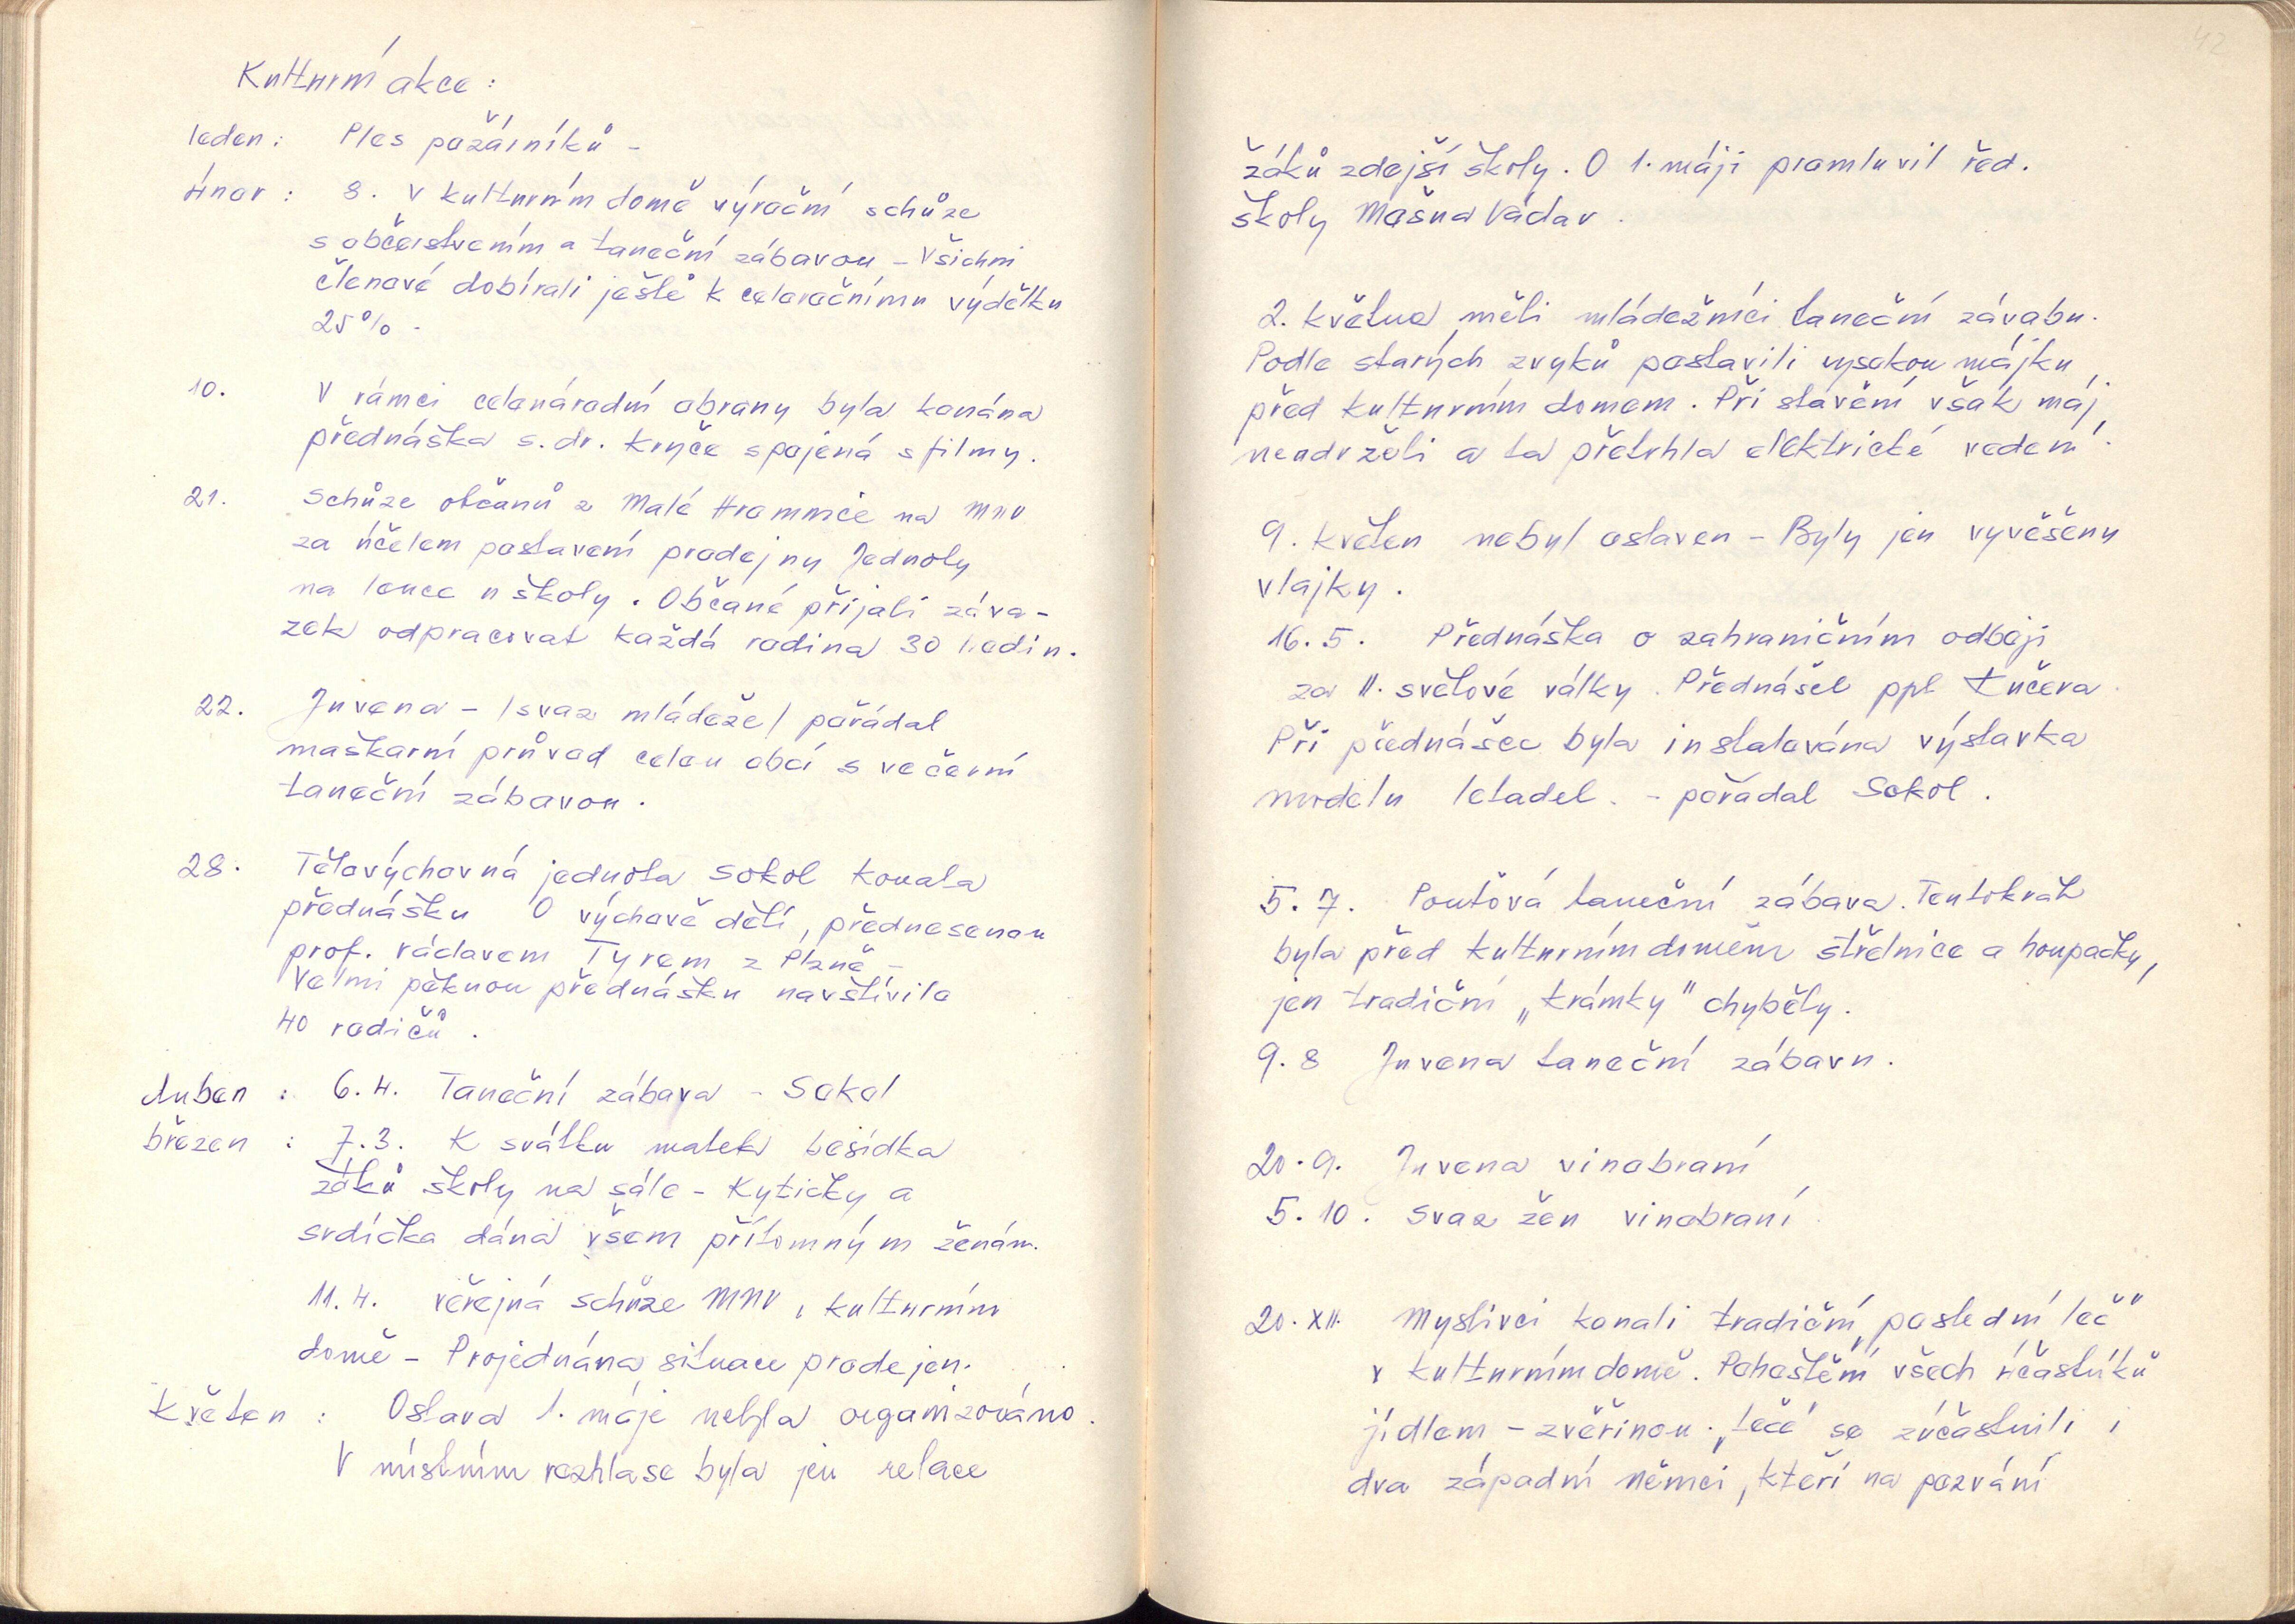 Kulturní akce :
leden : Ples požárníků -
únor : 8. V kulturním domě výroční schůze
s občerstvením a taneční zábavou - Všichni
členové dobírali ještě k celoročnímu výdělku
25% -
10. V rámci celonárodní obrany byla konána
přednáška s. dr. Krýče spojená s filmy.
21. Schůze občanů z Malé Hromnice na MNV
za účelem postavení prodejny Jednoty
na louce u školy. Občané přijali záva-
zek odpracovat každá rodina 30 hodin.
22. Juvena - /svaz mládeže/ pořádal
maškarní průvod celou obcí s večerní
taneční zábavou.
28. Tělovýchovná jednota Sokol konala
přednášku O výchově dětí, přednesenou
prof. Václavem Tyrem z Plzně -
Velmi pěknou přednášku navštívilo
40 rodičů.
duben : 6.4. Taneční zábava - Sokol
březen : 7.3. K svátku matek besídka
žáků školy na sále - Kytičky a
srdíčka dána všem přítomným ženám.
11.4. veřejná schůze MNV v kulturním
domě - Projednána situace prodejen.
Květen : Oslava 1. máje nebyla organizováno.
V místním rozhlase byla jen relace
42
žáků zdejší školy. O 1. máji promluvil řed.
školy Mašna Václav.
2. května měli mládežníci taneční závabu.
Podle starých zvyků postavili vysokou májku
před kulturním domem. Při stavění však máj
neudrželi a ta přetrhla elektrické vedení.
9. květen nebyl oslaven - Byly jen vyvěšeny
vlajky.
16.5. Přednáška o zahraničním odboji
za II. světové války. Přednášel ppl Kučera.
Při přednášce byla instalována výstavka
modelu letadel. - pořádal Sokol.
5.7. Pouťová taneční zábava. Tentokrát
byla před kulturním domem střelnice a houpačky,
jen tradiční „krámky" chyběly.
9.8 Juvena taneční zábavu.
20.9. Juvena vinobraní
5.10. Svaz žen vinobraní
20.XII. Myslivci konali tradiční „poslední leč"
v kulturním domě. Pohoštění všech účastníků
jídlem - zvěřinou. „Leče" se zúčastnili i
dva západní němci, kteří na pozvání